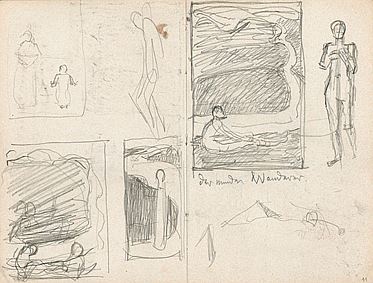 der müde Wanderer
11